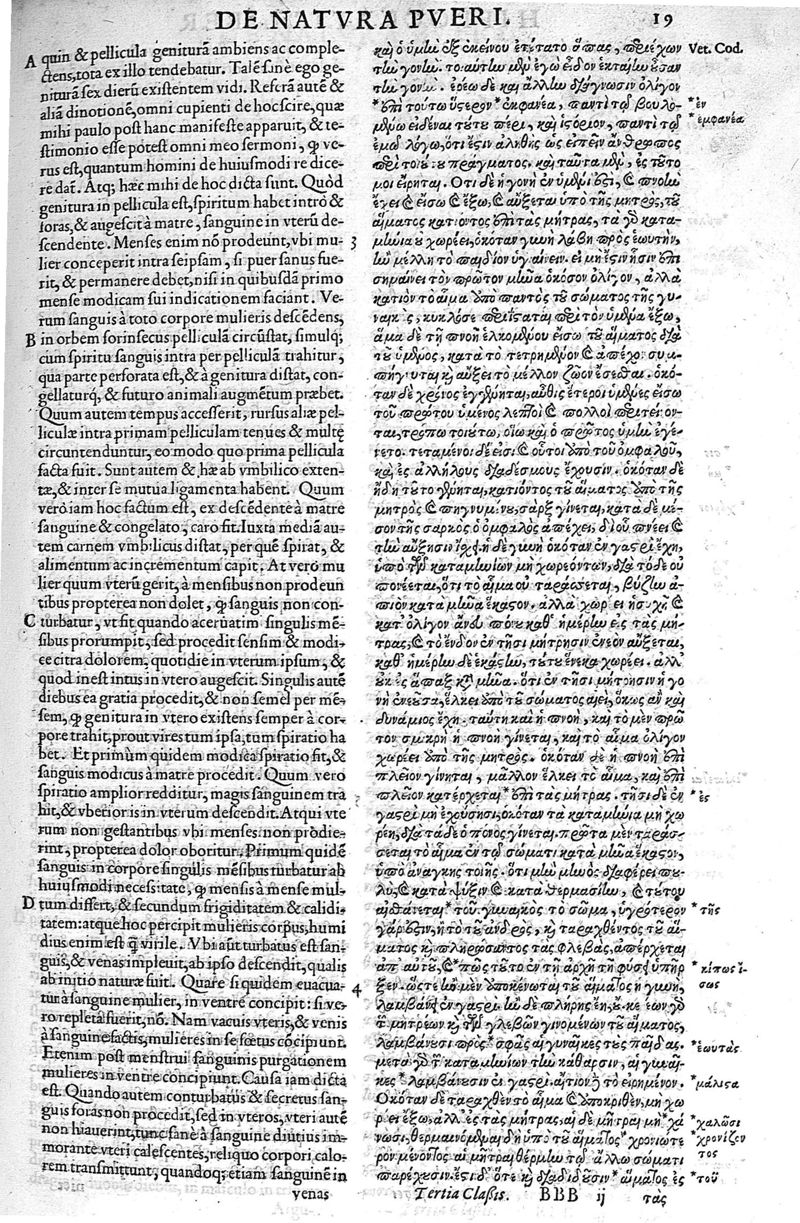 DE NATVRA PVERI. 19
A quin & pellicula geniturā ambiens ac comple-
ctens, tota ex illo tendebatur. Talē sanè ego ge-
niturā sex dierū existentem vidi. Referā autē &
aliā dinotionē, omni cupienti de hoc scire, quæ
mihi paulo post hanc manifeste apparuit, & te-
stimonio esse potest omni meo sermoni, ꝙ ve-
rus est, quantum homini de huiusmodi re dice-
re dat̄. Atq; hæc mihi de hoc dicta sunt. Quòd
genitura in pellicula est, spiritum habet intrò &
foras, & augescit à matre, sanguine in vterū de-
scendente. Menses enim nō prodeunt, vbi mu-
lier conceperit intra seipsam, si puer sanus fue-
rit, & permanere debet, nisi in quibusdā primo
mense modicam sui indicationem faciant. Ve-
rum sanguis à toto corpore mulieris descēdens,
B in orbem forinsecus pelliculā circūstat, simulq;
cùm spiritu sanguis intra per pelliculā trahitur,
qua parte perforata est, & à genitura distat, con-
gellaturq́, & futuro animali augmētum præbet.
Quum autem tempus accesserit, rursus aliæ pel-
liculæ intra primam pelliculam tenues & multę
circuntenduntur, eo modo quo prima pellicula
facta fuit. Sunt autem & hæ ab vmbilico exten-
tæ, & inter se mutua ligamenta habent. Quum
verò iam hoc factum est, ex descēdente à matre
sanguine & congelato, caro fit. Iuxta mediā au-
tem carnem vmbilicus distat, per quē spirat, &
alimentum ac incrementum capit. At vero mu
lier quum vterū gerit, à mensibus non prodeun
tibus propterea non dolet, ꝙ sanguis non con-
C turbatur, vt fit quando aceruatim singulis mē-
sibus prorumpit, sed procedit sensim & modi-
ce citra dolorem, quotidie in vterum ipsum, &
quod inest intus in vtero augescit. Singulis autē
diebus ea gratia procedit, & non semel per mē-
sem, ꝙ genitura in vtero existens semper à cor-
pore trahit, prout vires tum ipsa, tum spiratio ha
bet. Et primùm quidem modica spiratio fit, &
sanguis modicus à matre procedit. Quum vero
spiratio amplior redditur, magis sanguinem tra
hit, & vberior is in vterum descendit. Atqui vte
rum non gestantibus vbi menses non prodie-
rint, propterea dolor oboritur. Primum quidē
sanguis in corpore singulis mēsibus turbatur ab
huiusmodi necessitate, ꝙ mensis à mense mul-
D tum differt, & secundum frigiditatem & calidi-
tatem: atque hoc percipit mulieris corpus, humi
dius enim est q̃ virile. Vbi aūt turbatus est san-
guis, & venas impleuit, ab ipso descendit, qualis
ab initio natura fuit. Quare si quidem euacua-
tur à sanguine mulier, in ventre concipit: si ve-
ro repleta fuerit, nō. Nam vacuis vteris, & venis
à sanguine factis, mulieres in se fœtus cōcipiunt.
Etenim post menstrui sanguinis purgationem
mulieres in ventre concipiunt. Causa iam dicta
est. Quando autem conturbatus & secretus san-
guis foras non procedit, sed in vteros, vteri autē
non hiauerint, tunc sanè à sanguine diutius im-
morante vteri calescentes, reliquo corpori calo-
rem transmittunt, quandoq; etiam sanguinē in
venas
3
4
καὶ ὁ ὑμὴν ἐξ ἐκείνου ἐτέτατο ἅπας, περιέχων
τὴν γονήν. τοιαύτην μὲν ἐγὼ εἶδον ἑκταίην οὖσαν
τὴν γονήν. ἐρέω δὲ καὶ ἄλλην διάγνωσιν ὀλίγον
*ἐπὶ τούτῳ ὕστερον *ἐκφανέα, παντὶ τῷ βουλο-
μένῳ εἰδέναι τούτου πέρι, καὶ ἱστόριον, παντὶ τῷ
ἐμῷ λόγῳ, ὅτι ἐστὶν ἀληθὴς ὡς εἰπεῖν ἄνθρωπος
περὶ τοιούτου πράγματος. καὶ ταῦτα μὲν, ἐς τοῦτό
μοι εἴρηται. Ὅτι δὲ ἡ γονὴ ἐν ὑμένι ἐστὶ, καὶ πνοὴν
ἔχει καὶ εἴσω καὶ ἔξω, καὶ αὔξεται ὑπὸ τῆς μητρὸς, τοῦ
αἵματος κατιόντος ἐπὶ τὰς μήτρας, τὰ γὰρ κατα-
μήνια οὐ χωρέει, ὁκόταν γυνὴ λάβῃ πρὸς ἑωυτήν,
ἢν μέλλῃ τὸ παιδίον ὑγιαίνειν. εἰ μὴ ἔστιν ᾗσιν ἐπι
σημαίνει τὸν πρῶτον μῆνα ὁκόσον ὀλίγον, ἀλλὰ
κατιὸν τὸ αἷμα ἀπὸ παντὸς τοῦ σώματος τῆς γυ-
ναικὸς, κυκλόσε περιίσταται περὶ τὸν ὑμένα ἔξω,
ἅμα δὲ τῇ πνοῇ ἑλκομένου εἴσω τοῦ αἵματος διὰ
τοῦ ὑμένος, κατὰ τὸ τετρημένον καὶ ἀπέχον συμ-
πήγνυται καὶ αὔξει τὸ μέλλον ζῶον ἔσεσθαι. ὁκό-
ταν δὲ χρόνος ἐγγένηται, αὖθις ἕτεροι ὑμένες εἴσω
τοῦ πρώτου ὑμένος λεπτοὶ καὶ πολλοὶ περιτείνον-
ται, τρόπῳ τοιούτῳ, οἵῳ καὶ ὁ πρῶτος ὑμὴν ἐγέ-
νετο. τεταμένοι δέ εἰσι καὶ οὗτοι ἀπὸ τοῦ ὀμφαλοῦ,
καὶ ἐς ἀλλήλους διαδέσμους ἔχουσιν. ὁκόταν δὲ
ἤδη τοῦτο γένηται, κατιόντος τοῦ αἵματος ἀπὸ τῆς
μητρὸς καὶ πηγνυμένου, σὰρξ γίνεται, κατὰ δὲ μέ-
σον τῆς σαρκὸς ὁ ὀμφαλὸς ἀπέχει, δι᾽ οὗ πνέει καὶ
τὴν αὔξησιν ἴσχει. ἡ δὲ γυνὴ ὁκόταν ἐν γαστρὶ ἔχῃ,
ὑπὸ τῶν καταμηνίων μὴ χωρεόντων, διὰ τόδε οὐ
πονέεται, ὅτι τὸ αἷμα οὐ ταράσσεται, βύζην ἀ-
πιὸν κατὰ μῆνα ἕκαστον. ἀλλὰ χωρέει ἡσυχῆ καὶ
κατ᾽ ὀλίγον ἄνευ πόνου καθ᾽ ἡμέρην εἰς τὰς μή-
τρας, καὶ τὸ ἔνδον ἐν τῇσι μήτρῃσιν ἐνεὸν αὔξεται,
καθ᾽ ἡμέρην δὲ ἑκάστην, τούτου ἕνεκα χωρέει. ἀλλ᾽
οὐκ ἐς ἅπαξ κατὰ μῆνα. ὅτι ἐν τῇσι μήτρῃσιν ἡ γο
νὴ ἐνεοῦσα, ἕλκει ἀπὸ τοῦ σώματος αἰεὶ, ὅκως ἂν καὶ
δυνάμιος ἔχῃ. ταύτῃ καὶ ἡ πνοὴ, καὶ τὸ μὲν πρῶ
τον σμικρὴ ἡ πνοὴ γίνεται, καὶ τὸ αἷμα ὀλίγον
χωρέει ἀπὸ τῆς μητρὸς. ὁκόταν δὲ ἡ πνοὴ ἐπὶ
πλεῖον γίνηται, μᾶλλον ἕλκει τὸ αἷμα, καὶ ἐπὶ
πλεῖον κατέρχεται *ἐπὶ τὰς μήτρας. τῇσι δὲ ἐν
γαστρὶ μὴ ἐχούσῃσι, ὁκόταν τὰ καταμήνια μὴ χω
ρέῃ, διὰ τάδε ὁ πόνος γίνεται. πρῶτα μὲν ταράσ-
σεται τὸ αἷμα ἐν τῷ σώματι κατὰ μῆνα ἕκαστον,
ὑπὸ ἀνάγκης τοίης. ὅτι μὴν μηνὸς διαφέρει που-
λὺ, καὶ κατὰ ψύξιν καὶ κατὰ θερμασίην, καὶ τούτου
αἰσθάνεται *τοῦ γυναικὸς τὸ σῶμα, ὑγρότερον
γὰρ ἐστιν, ἢ τὸ τοῦ ἀνδρὸς, καὶ ταραχθέντος τοῦ αἵ-
ματος καὶ πληρώσαντος τὰς φλέβας, ἀπέρχεται
ἀπ᾽ αὐτοῦ, καὶ *πως τοῦτο ἐν τῇ ἀρχῇ τῇ φύσει ὑπῆρ
ξεν. ὥστε ἢν μὲν ἀποκενῶται τοῦ αἵματος ἡ γυνὴ,
λαμβάνει ἐν γαστρὶ. ἢν δὲ πλήρης ἔῃ, οὔκ. κενεῶν γὰρ
τῶν μητρέων καὶ τῶν φλεβῶν γινομένων τοῦ αἵματος,
λαμβάνουσι πρὸς *σφᾶς αἱ γυναῖκες τοὺς παῖδας.
μετὰ γὰρ τῶν καταμηνίων τὴν κάθαρσιν, αἱ γυναῖ-
κες *λαμβάνουσιν ἐν γαστρὶ. αἴτιον δὲ τὸ εἰρημένον.
Ὁκόταν δὲ ταραχθὲν τὸ αἷμα καὶ ἀποκριθὲν, μὴ χω
ρέει ἔξω, ἀλλ᾽ ἐς τὰς μήτρας, αἱ δὲ μῆτραι μὴ *χά-
νωσι, θερμαινόμεναι δὴ ὑπὸ τοῦ αἵματος *χρονιωτέ
ρον μένοντος αἱ μῆτραι θέρμην τῷ ἄλλῳ σώματι
παρέχουσιν. ἔστι δ᾽ ὅτε καὶ διαδιδοῦσιν *αἵματος ἐς
τὰς
Vet. Cod.
*ἐν
*ἐμφανέα
*ἐς
*τῆς
*κἴπως ἴ-
σως
*ἑωυτὰς
*μάλιστα
*χαλῶσι
*χρονίζον
τος
*τοῦ
Tertia Classis. BBB ij